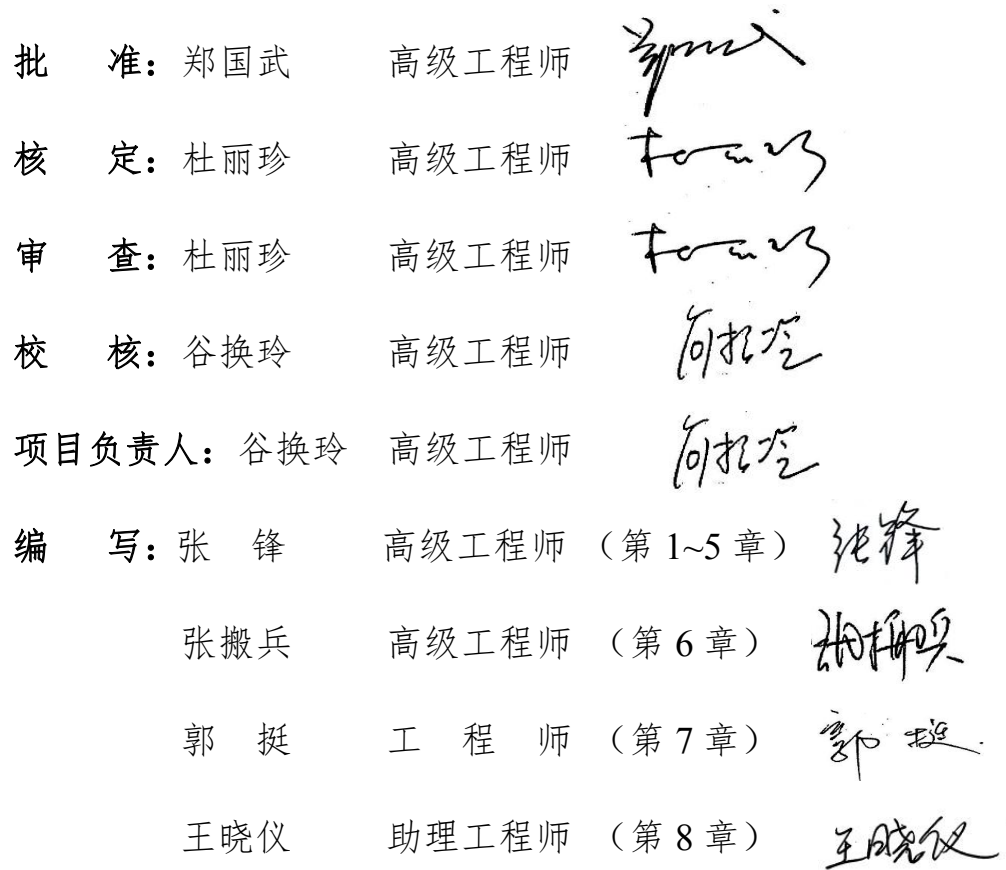 批 准：郑国武 高级工程师
核 定：杜丽珍 高级工程师
审 查：杜丽珍 高级工程师
校 核：谷换玲 高级工程师
项目负责人：谷换玲 高级工程师
编 写：张 锋 高级工程师 （第 1~5 章） 张锋
张搬兵 高级工程师 （第 6 章）
郭 挺 工 程 师 （第 7 章） 郭挺
王晓仪 助理工程师 （第 8 章） 王晓仪